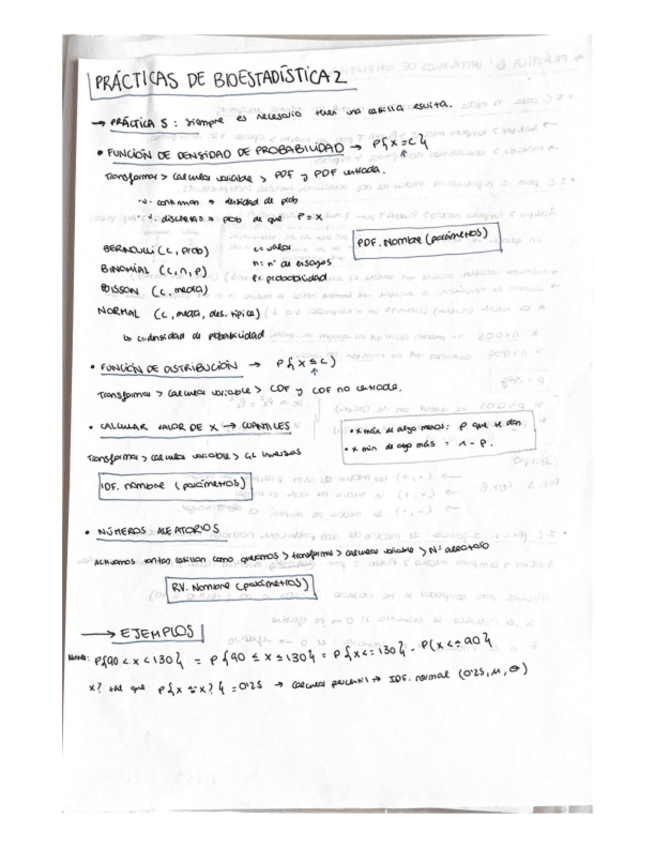 PRÁCTICAS DE BIOESTADÍSTICA 2
→ PRÁCTICA 5: siempre es necesario tener una casilla escrita.
• FUNCIÓN DE DENSIDAD DE PROBABILIDAD → P{X=C}
Transformar > calcular variable > PDF y PDF no centrada.
·v. continuas → densidad de prob
·v. discretas → prob de que P=X
PDF. Nombre (parámetros)
BERNOULLI (c, prob) c=valor
BINOMIAL (c, n, p) n=nº de ensayos
POISSON (c, media) p=probabilidad
NORMAL (c, media, des. típica)
↳ densidad de probabilidad
• FUNCIÓN DE DISTRIBUCIÓN → P{X≤C}
Transformar > calcular variable > CDF y CDF no centrada.
• CALCULAR VALOR DE X → CUANTILES
• x máx de algo menos: p que te dan
• x min de algo más = 1-p.
Transformar > calcular variable > GL inversos
IDF. nombre (parámetros)
• NÚMEROS ALEATORIOS
Activamos tantas casillas como queramos > transformar > calcular variable > Nº aleatorio
RV. Nombre (parámetros)
→ EJEMPLOS
P{90<x<130} = P{90≤x≤130} = P{x<=130} - P{x<=90}
x? tal que P{x≤x?} = 0'25 → calcular percentil → IDF. normal (0'25, μ, σ)